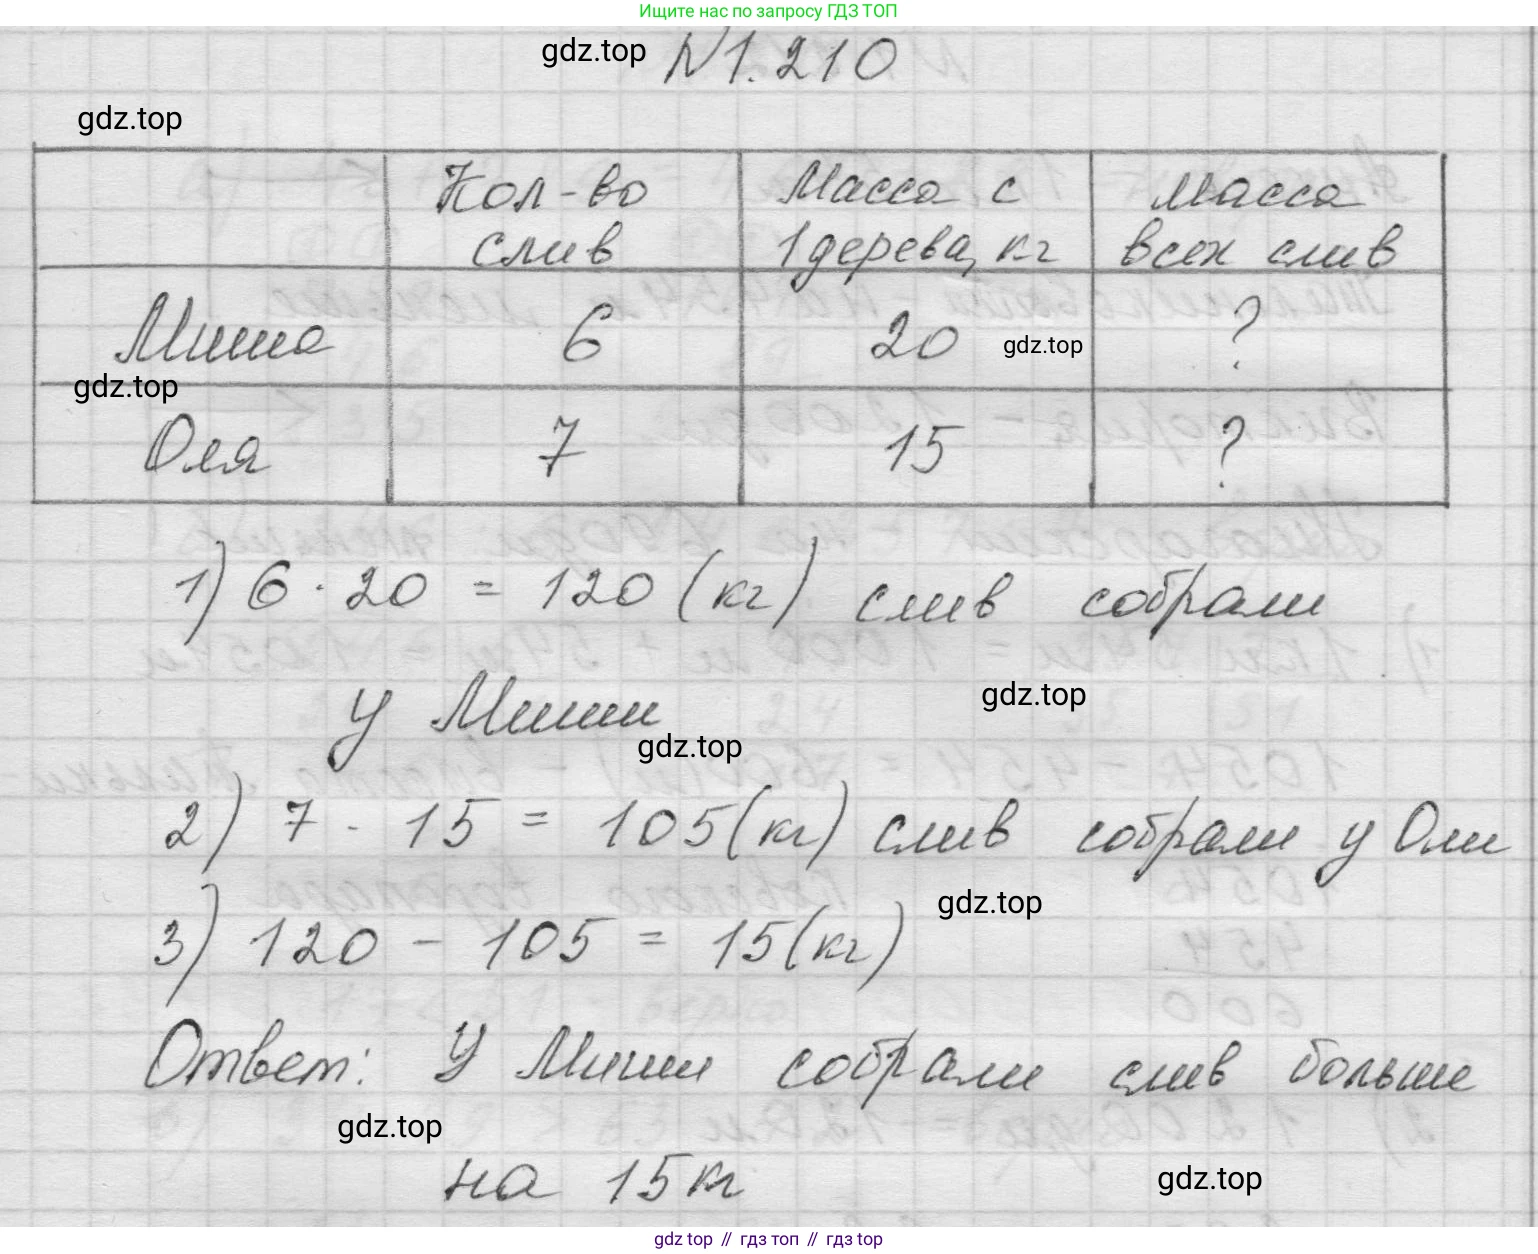 Ищите нас по запросу ГДЗ ТОП
gdz.top
№1.210
gdz.top
Кол-во слив
Масса с 1 дерева, кг
Масса всех слив
Миша 6 20 gdz.top ?
gdz.top
Оля 7 15 ?
1) 6 · 20 = 120 (кг) слив собрали
у Миши
gdz.top
gdz.top
2) 7 · 15 = 105 (кг) слив собрали у Оли
gdz.top
3) 120 - 105 = 15 (кг)
Ответ: У Миши собрали слив больше
gdz.top
на 15 кг
gdz.top
gdz top // гдз топ // гдз top